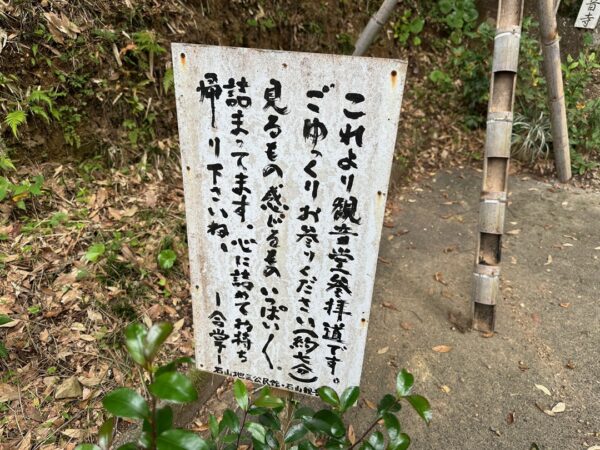 音寺
これより観音堂参拝道です。
ごゆっくりお参りください(約七分)
見るもの感じるもの いっぱい〱
詰まってます。心に詰めてお持ち
帰り下さいね。 ー合掌ー
石山地区公民館・石山観